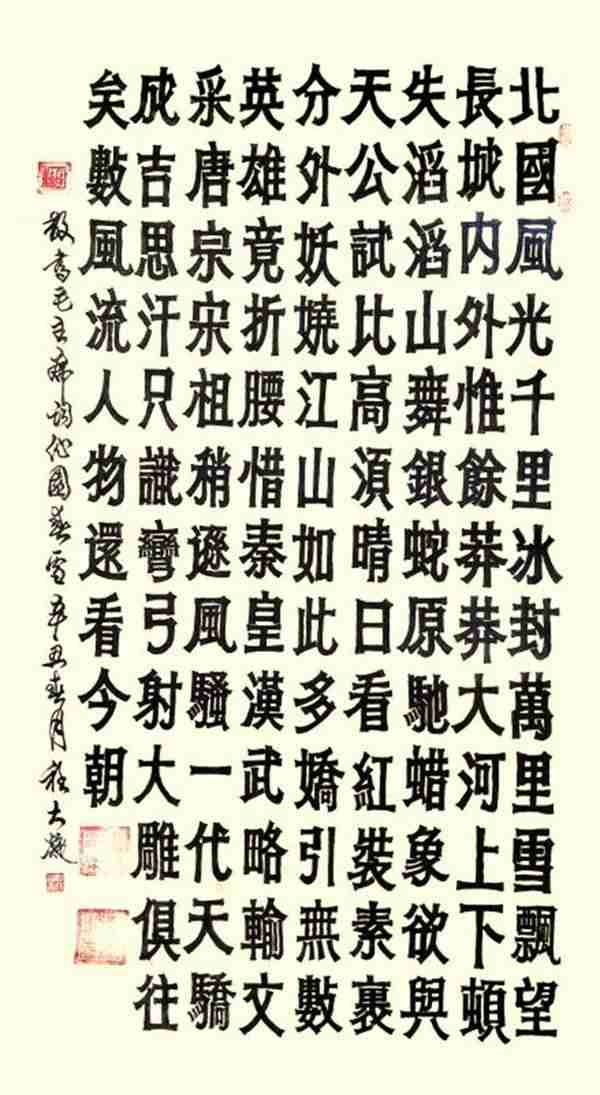 北國風光千里冰封萬里雪飄望
長城内外惟餘莽莽大河上下頓
失滔滔山舞銀蛇原馳蜡象欲與
天公試比高須晴日看紅裝素裹
分外妖嬈江山如此多嬌引無數
英雄竟折腰惜秦皇漢武略輸文
采唐宗宋祖稍遜風騷一代天驕
成吉思汗只識彎弓射大雕俱往
矣數風流人物還看今朝
敬書毛主席詞沁園春雪辛丑春月